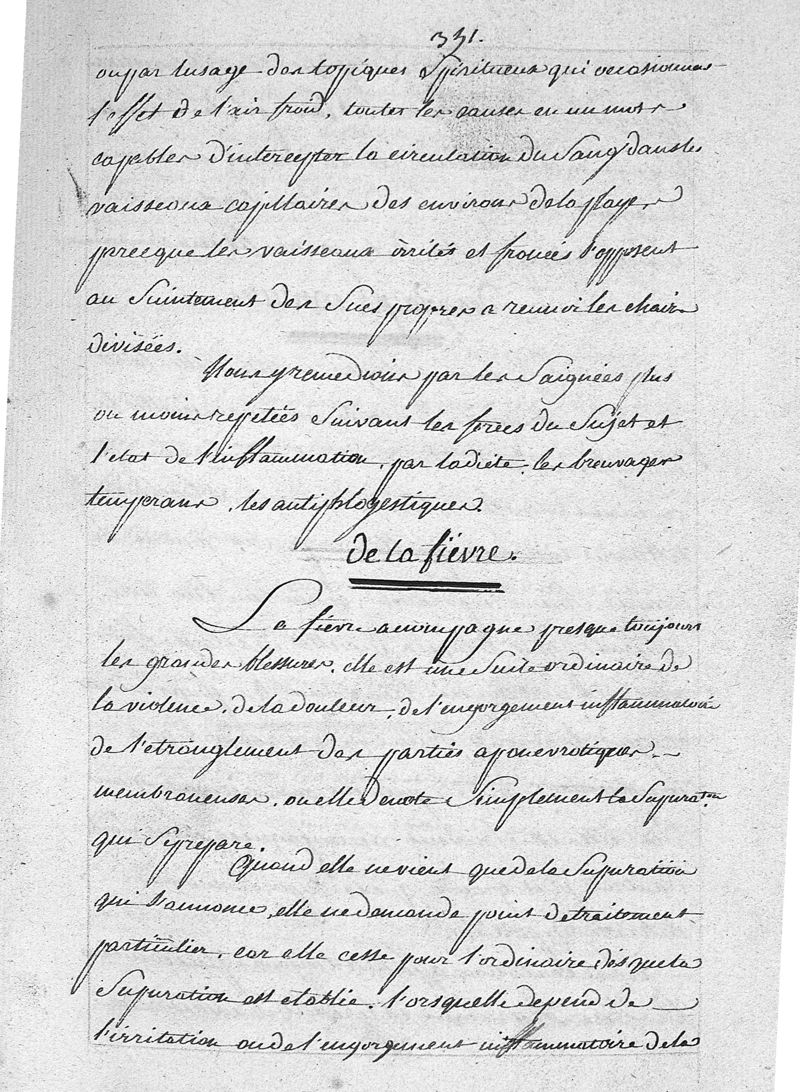 331.
ou par lusage des topiques Spiritueux qui occasionnent
l'effet de l'air froid, toutes les causes en un mots
capables d'intercepter la circulation du Sang dans les
vaisseaux capillaires des environs de la playe,
parceque les vaisseaux irrités et froncés s'opposent
au Suintement des Sucs propres a reunir les chairs
divisées.
Nous y remedions par les Saignées plus
ou moins repetées Suivant les forces du Sujet et
l'etat de l'inflammation, par la diéte, les breuvages
temperans, les antiphlogestiques.
de la fiévre.
La fiévre accompagne presque toujours
les grandes blessures, elle est une Suite ordinaire de
la violence, de la douleur, de l'engorgement inflammatoire
de l'etranglement des parties aponevrotiques
membraneuses, ou elle denote Simplement la Supurat.on
qui Se prepare.
Quand elle ne vient que de la Supuration
qui S'annonce, elle ne demande point de traitement
particulier, car elle cesse pour l'ordinaire dés que la
Supuration est etablie. lorsquelle depend de
l'irritation ou de l'engorgement inflammatoire de la